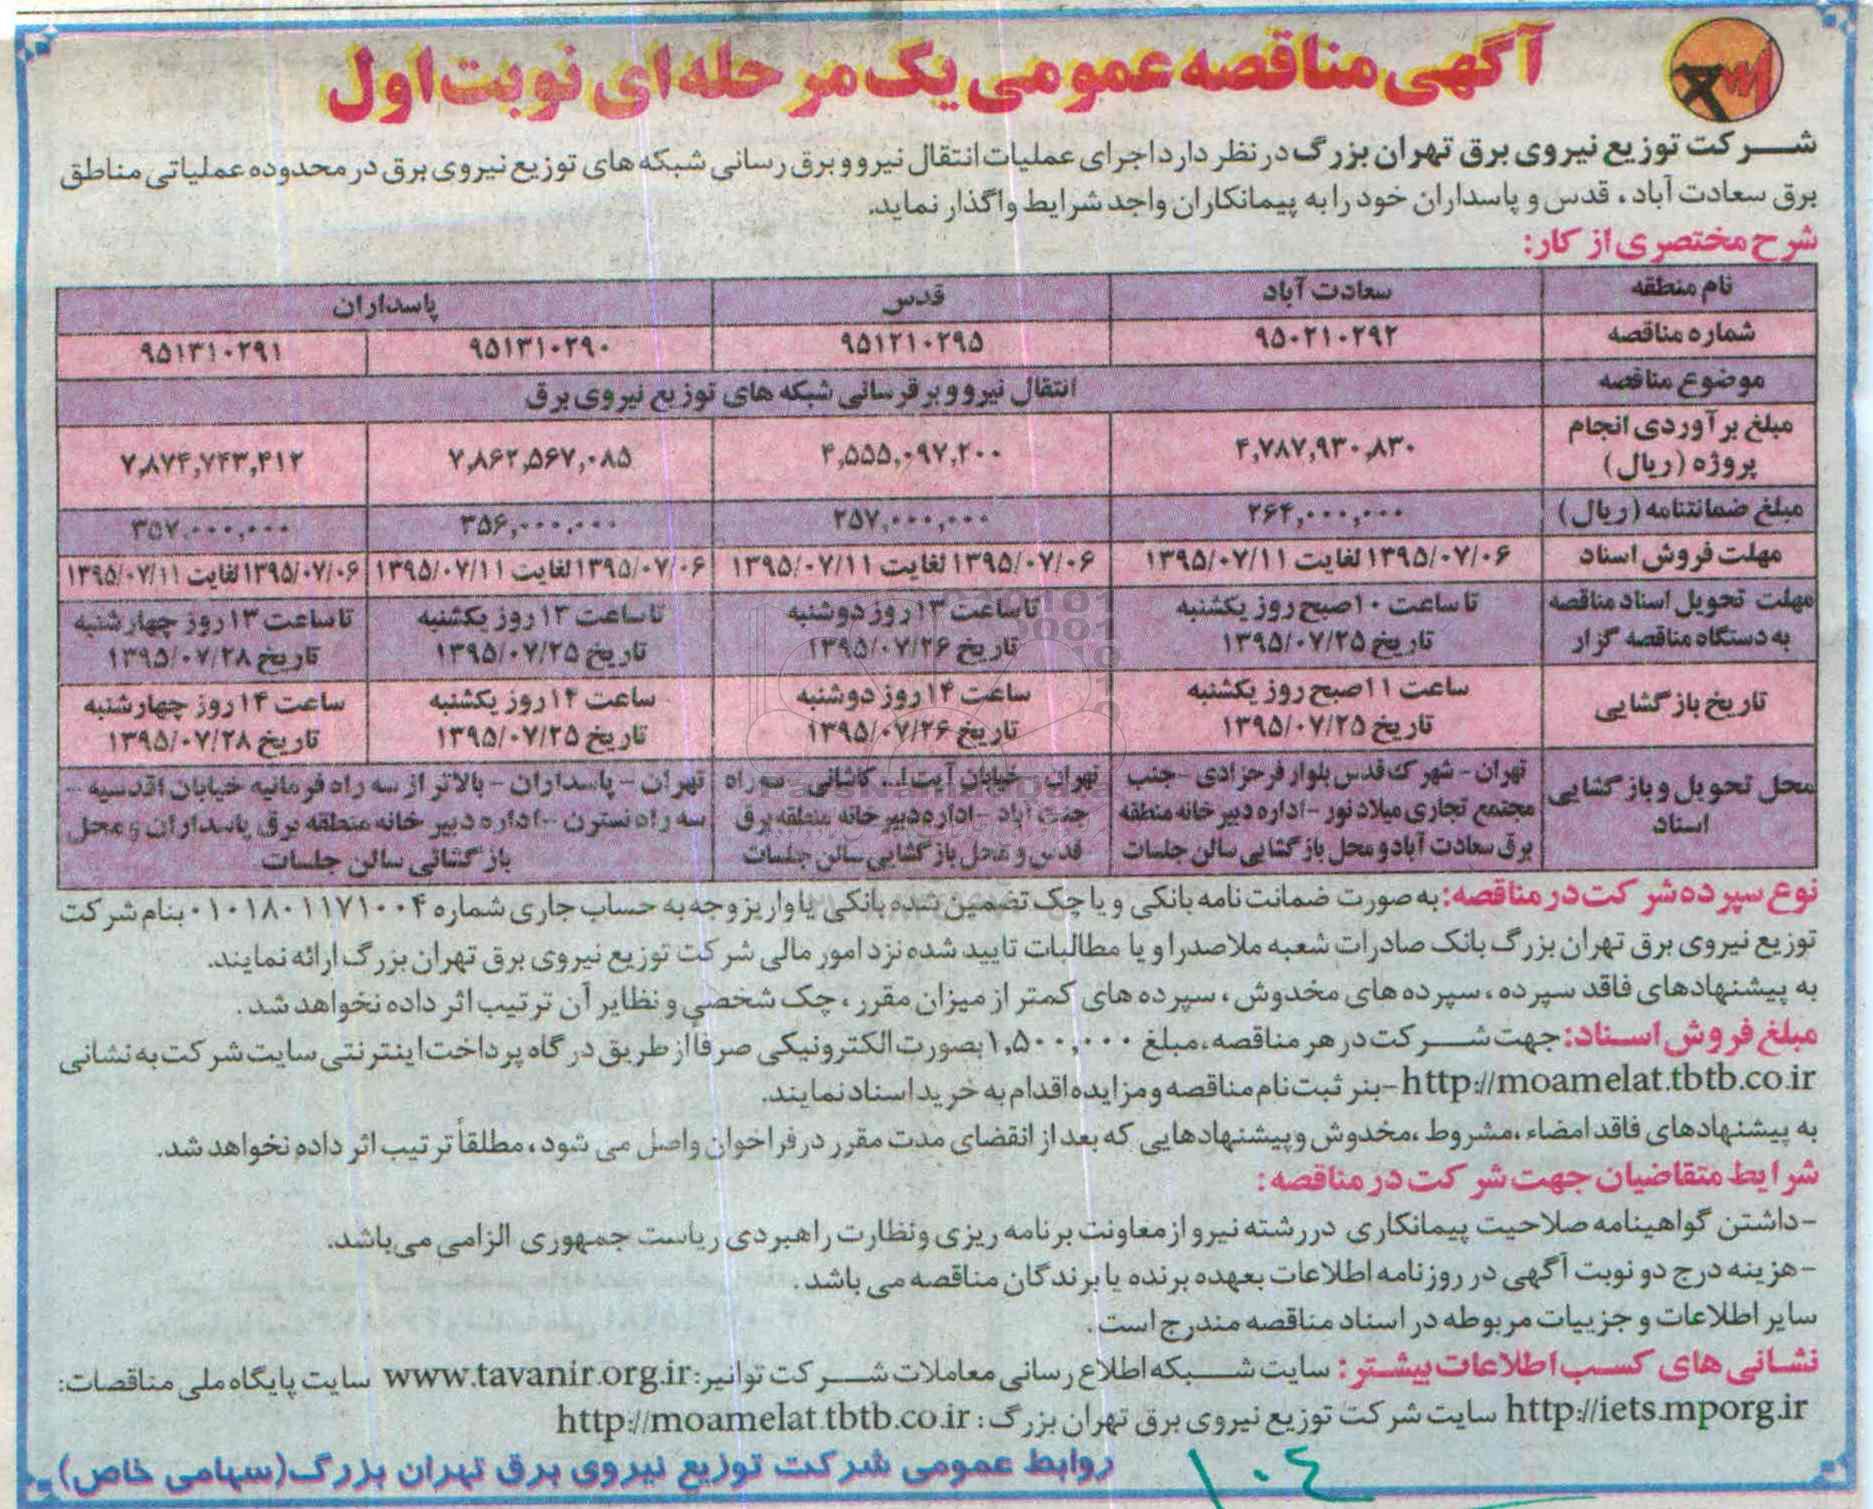 آگهی مناقصه عمومی یک مرحله ای نوبت اول
شرکت توزیع نیروی برق تهران بزرگ در نظر دارد اجرای عملیات انتقال نیرو و برق رسانی شبکه های توزیع نیروی برق در محدوده عملیاتی مناطق
برق سعادت آباد، قدس و پاسداران خود را به پیمانکاران واجد شرایط واگذار نماید.
شرح مختصری از کار:
نام منطقه سعادت آباد قدس پاسداران
شماره مناقصه ۹۵۰۲۱۰۲۹۲ ۹۵۱۲۱۰۲۹۵ ۹۵۱۳۱۰۲۹۰ ۹۵۱۳۱۰۲۹۱
موضوع مناقصه انتقال نیرو و برقرسانی شبکه های توزیع نیروی برق
مبلغ برآوردی انجام پروژه (ریال) ۴,۷۸۷,۹۳۰,۸۳۰ ۴,۵۵۵,۰۹۷,۲۰۰ ۷,۸۶۲,۵۶۷,۰۸۵ ۷,۸۷۴,۷۴۳,۴۱۲
مبلغ ضمانتنامه (ریال) ۲۶۴,۰۰۰,۰۰۰ ۲۵۷,۰۰۰,۰۰۰ ۳۵۶,۰۰۰,۰۰۰ ۳۵۷,۰۰۰,۰۰۰
مهلت فروش اسناد ۱۳۹۵/۰۷/۰۶ لغایت ۱۳۹۵/۰۷/۱۱ ۱۳۹۵/۰۷/۰۶ لغایت ۱۳۹۵/۰۷/۱۱ ۱۳۹۵/۰۷/۰۶ لغایت ۱۳۹۵/۰۷/۱۱ ۱۳۹۵/۰۷/۰۶ لغایت ۱۳۹۵/۰۷/۱۱
مهلت تحویل اسناد مناقصه تا ساعت ۱۰ صبح روز یکشنبه تا ساعت ۱۳ روز دوشنبه تا ساعت ۱۳ روز یکشنبه تا ساعت ۱۳ روز چهارشنبه
به دستگاه مناقصه گزار تاریخ ۱۳۹۵/۰۷/۲۵ تاریخ ۱۳۹۵/۰۷/۲۶ تاریخ ۱۳۹۵/۰۷/۲۵ تاریخ ۱۳۹۵/۰۷/۲۸
تاریخ بازگشایی ساعت ۱۱ صبح روز یکشنبه ساعت ۱۴ روز دوشنبه ساعت ۱۴ روز یکشنبه ساعت ۱۴ روز چهارشنبه
تاریخ ۱۳۹۵/۰۷/۲۵ تاریخ ۱۳۹۵/۰۷/۲۶ تاریخ ۱۳۹۵/۰۷/۲۵ تاریخ ۱۳۹۵/۰۷/۲۸
محل تحویل و بازگشایی اسناد
تهران - شهرک قدس بلوار فرحزادی - جنب
مجتمع تجاری میلاد نور - اداره دبیرخانه منطقه
برق سعادت آباد و محل بازگشایی سالن جلسات
تهران - خیابان آیت ا... کاشانی - سه راه
جنت آباد - اداره دبیرخانه منطقه برق
قدس و محل بازگشایی سالن جلسات
تهران - پاسداران - بالاتر از سه راه فرمانیه خیابان اقدسیه -
سه راه نسترن - اداره دبیرخانه منطقه برق پاسداران و محل
بازگشائی سالن جلسات
نوع سپرده شرکت در مناقصه: به صورت ضمانت نامه بانکی و یا چک تضمین شده بانکی یا واریز وجه به حساب جاری شماره ۰۱۰۱۸۰۱۱۷۱۰۰۴ بنام شرکت
توزیع نیروی برق تهران بزرگ بانک صادرات شعبه ملاصدرا و یا مطالبات تایید شده نزد امور مالی شرکت توزیع نیروی برق تهران بزرگ ارائه نمایند.
به پیشنهادهای فاقد سپرده، سپرده های مخدوش، سپرده های کمتر از میزان مقرر، چک شخصی و نظایر آن ترتیب اثر داده نخواهد شد.
مبلغ فروش اسناد: جهت شرکت در هر مناقصه، مبلغ ۱,۵۰۰,۰۰۰ بصورت الکترونیکی صرفاً از طریق درگاه پرداخت اینترنتی سایت شرکت به نشانی
http://moamelat.tbtb.co.ir - بنر ثبت نام مناقصه و مزایده اقدام به خرید اسناد نمایند.
به پیشنهادهای فاقد امضاء، مشروط، مخدوش و پیشنهادهایی که بعد از انقضای مدت مقرر در فراخوان واصل می شود، مطلقاً ترتیب اثر داده نخواهد شد.
شرایط متقاضیان جهت شرکت در مناقصه:
-داشتن گواهینامه صلاحیت پیمانکاری در رشته نیرو از معاونت برنامه ریزی و نظارت راهبردی ریاست جمهوری الزامی می باشد.
-هزینه درج دو نوبت آگهی در روزنامه اطلاعات بعهده برنده یا برندگان مناقصه می باشد.
سایر اطلاعات و جزییات مربوطه در اسناد مناقصه مندرج است.
نشانی های کسب اطلاعات بیشتر: سایت شبکه اطلاع رسانی معاملات شرکت توانیر: www.tavanir.org.ir سایت پایگاه ملی مناقصات:
http://iets.mporg.ir سایت شرکت توزیع نیروی برق تهران بزرگ: http://moamelat.tbtb.co.ir
روابط عمومی شرکت توزیع نیروی برق تهران بزرگ (سهامی خاص)
۱۰۴